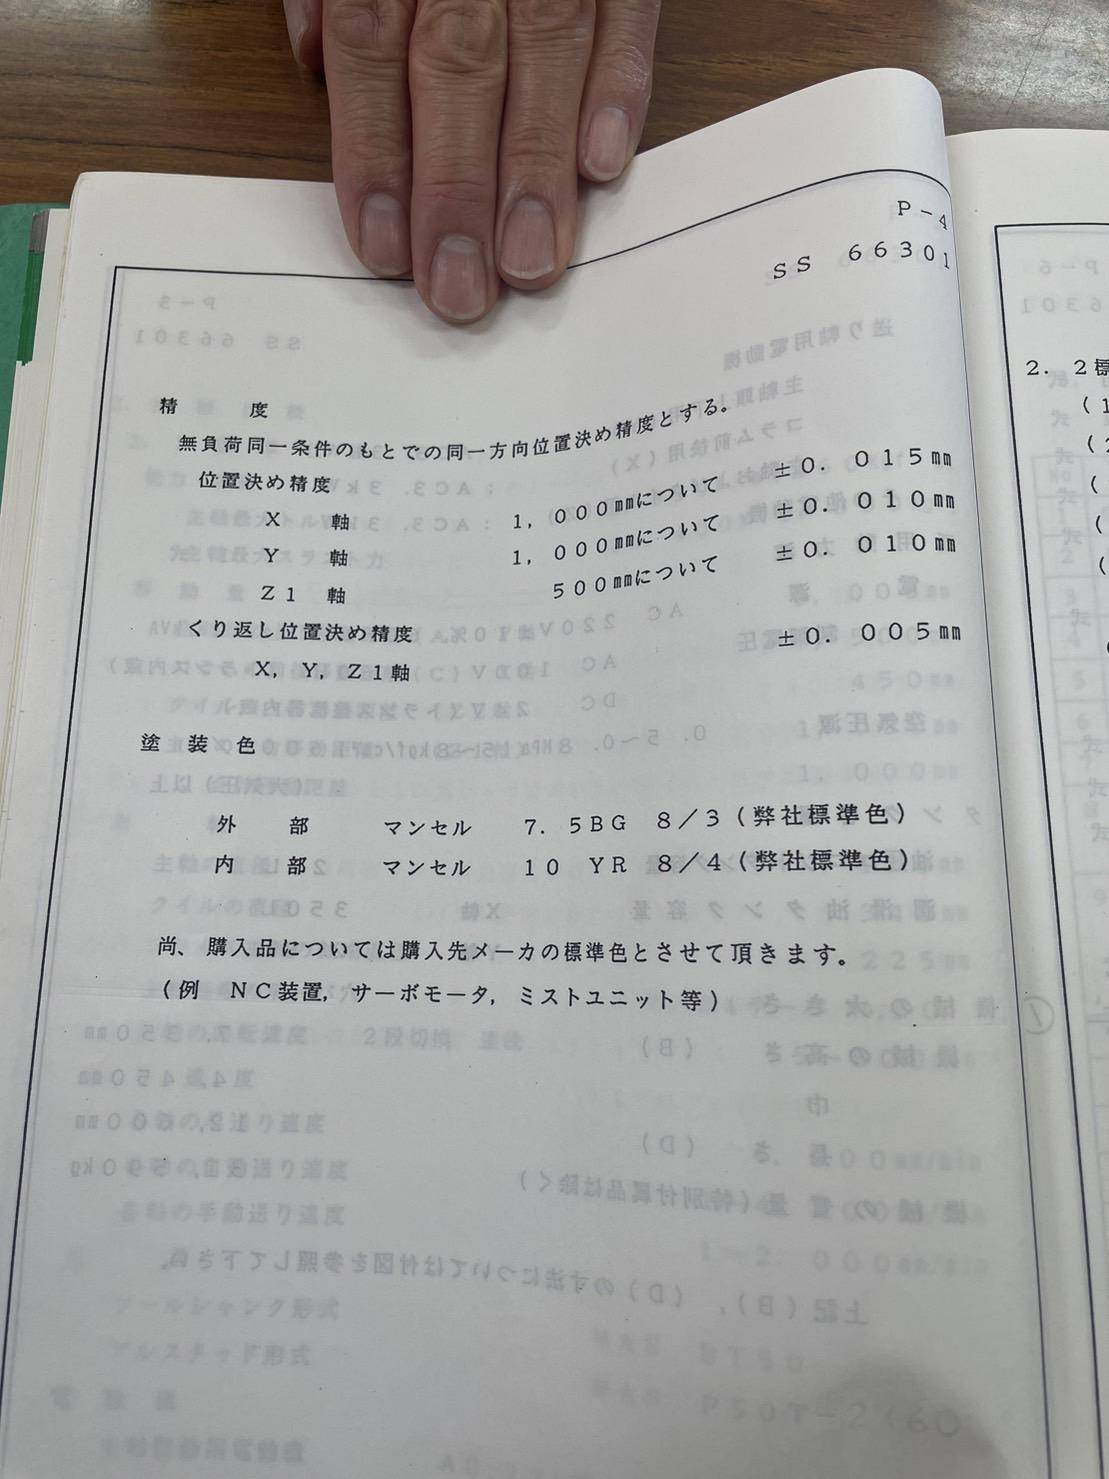 P－4
SS　66301
精　　度
無負荷同一条件のもとでの同一方向位置決め精度とする。
位置決め精度
X　　軸　　1，000㎜について　　±0．015㎜
Y　　軸　　1，000㎜について　　±0．010㎜
Z1　軸　　500㎜について　　±0．010㎜
くり返し位置決め精度
X，Y，Z1軸　　±0．005㎜
塗装色
外　　部　　マンセル　　7．5BG　8／3（弊社標準色）
内　　部　　マンセル　　10　YR　8／4（弊社標準色）
尚、購入品については購入先メーカの標準色とさせて頂きます。
（例　NC装置，サーボモータ，ミストユニット等）
2．2標
（1